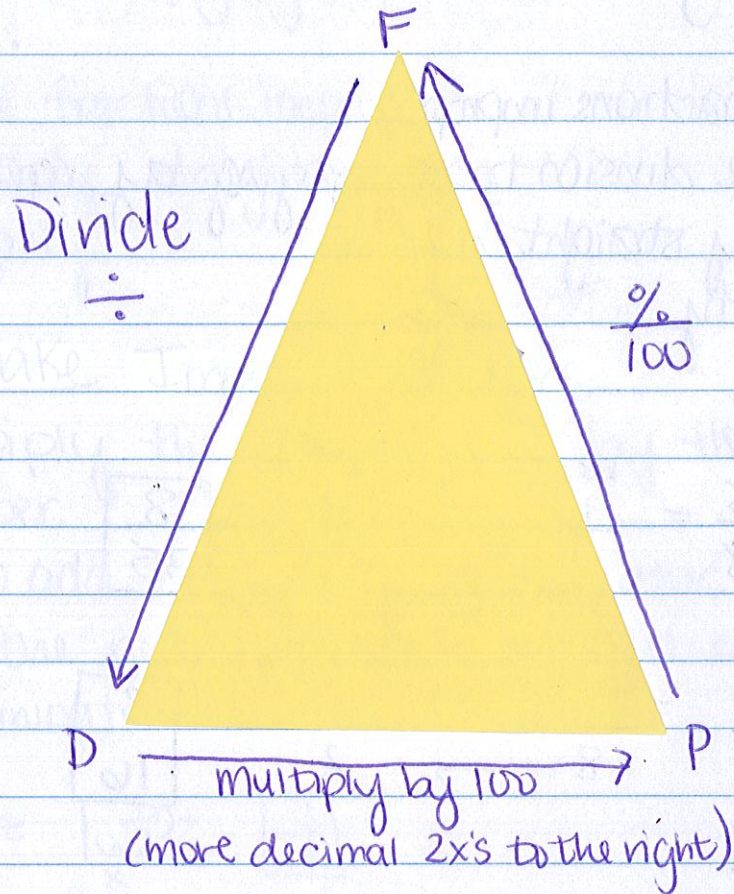 F
Divide
÷
%
100
D
P
multiply by 100
(more decimal 2x's to the right)